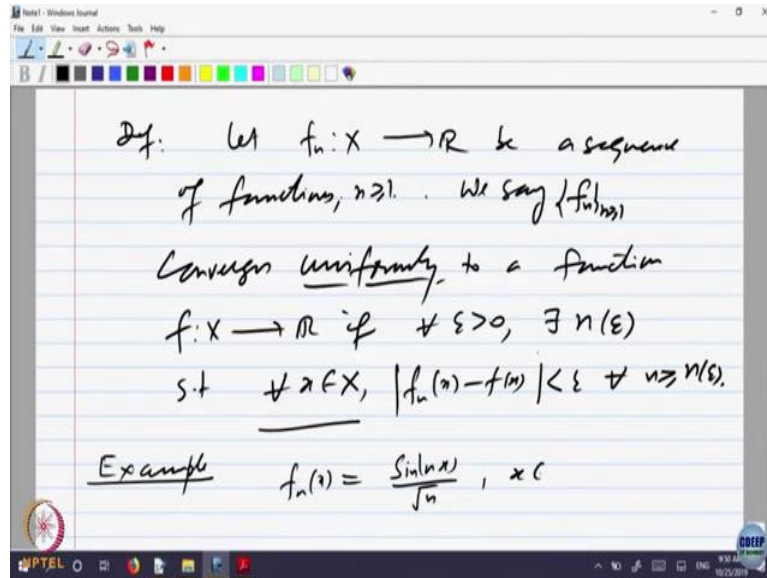 Note1 - Windows Journal
File Edit View Insert Actions Tools Help
B I
Def: Let fₙ: X ⟶ ℝ be a sequence
of functions, n≥1. We say {fₙ}ₙ≥1
Converges uniformly to a function
f: X ⟶ ℝ if ∀ ε>0, ∃ n(ε)
s.t ∀ x∈X, |fₙ(x)-f(x)|<ε ∀ n≥n(ε).
Example fₙ(x) = sin(nx)/√n, x ∈
NPTEL
CDEEP
ENG
9:50 AM
10/25/2019